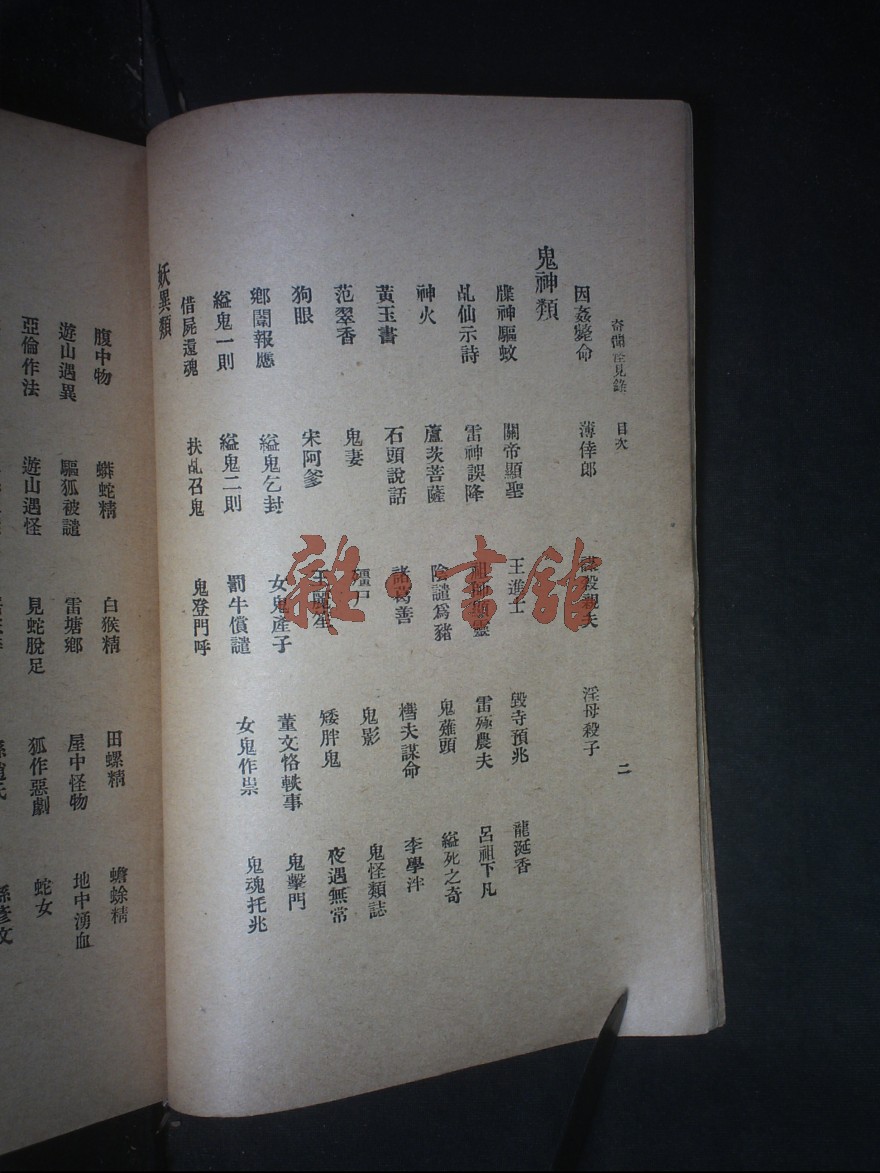 奇聞怪見錄　目次　二
因姦斃命　薄倖郎　謀殺親夫　淫母殺子
鬼神類
牒神驅蚊　關帝顯聖　王進士　毀寺預兆　龍涎香
乩仙示詩　雷神誤降　祖師顯靈　雷殛農夫　呂祖下凡
神火　蘆茨菩薩　陰譴爲豬　鬼薙頭　縊死之奇
黃玉書　石頭說話　諸葛善　樵夫謀命　李學泮
范翠香　鬼妻　殭尸　鬼影　鬼怪類誌
狗眼　宋阿爹　王麗生　矮胖鬼　夜遇無常
鄉闈報應　縊鬼乞封　女鬼產子　董文恪軼事　鬼擊門
縊鬼一則　縊鬼二則　罰牛償譴　女鬼作祟　鬼魂托兆
借屍還魂　扶乩召鬼　鬼登門呼
妖異類
腹中物　蟒蛇精　白猴精　田螺精　蟾蜍精
遊山遇異　驅狐被譴　雷塘鄉　屋中怪物　地中湧血
亞倫作法　遊山遇怪　見蛇脫足　狐作惡劇　蛇女
雜·書館